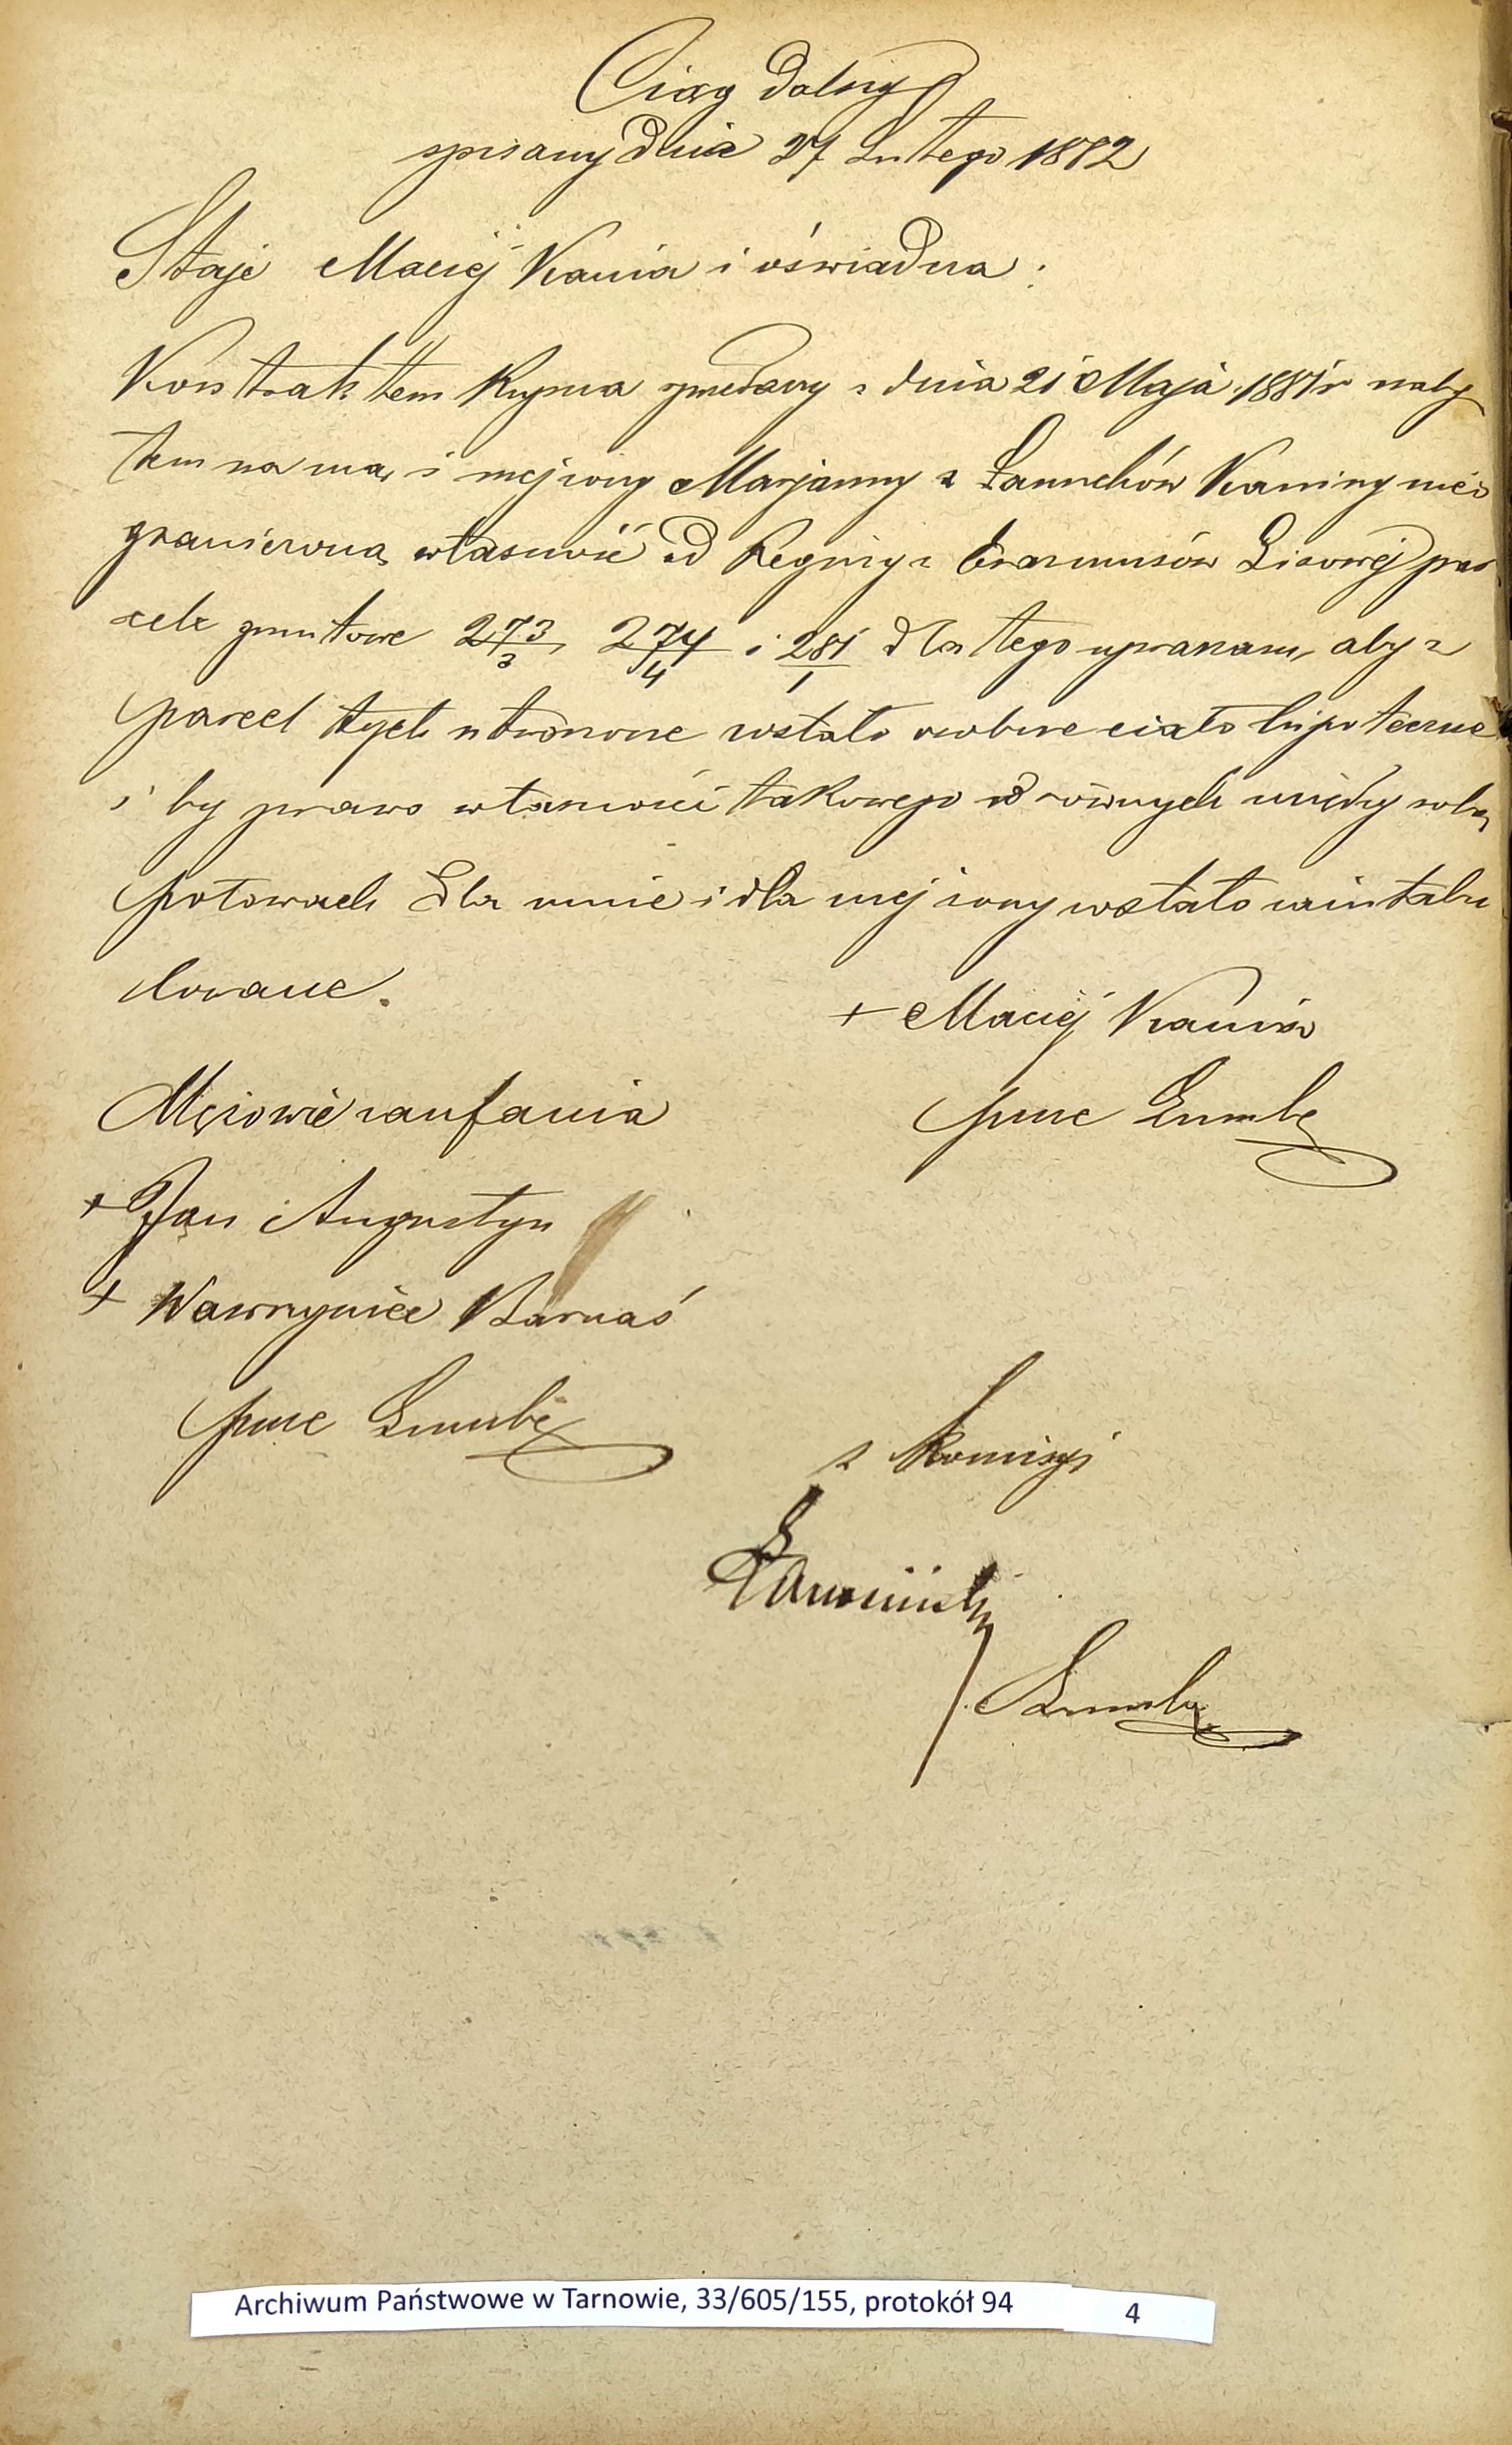 Ciąg dalszy
spisany dnia 27 Lutego 1882
Staje Maciej Kania i oświadcza:
Kontraktem kupna sprzedaży z dnia 21 Maja 1881 r naby
łem na mą i mej żony Marjanny z Kaniny nieo
graniczoną własność od Reginy z Erazmusów Lisowej par
cele gruntowe 273/3, 274/4 i 281/1 dla tego upraszam, aby z
parcel tych utworzone zostało osobne ciało hipoteczne
i by prawo własności takowego w równych między sobą
połowach dla mnie i dla mej żony zostało zaintabu
lowane.
+ Maciej Kania
Mężowie zaufania
przez
+ Jan Augustyn
+ Wawrzyniec Barnaś
przez
z komisyi
Archiwum Państwowe w Tarnowie, 33/605/155, protokół 94 4